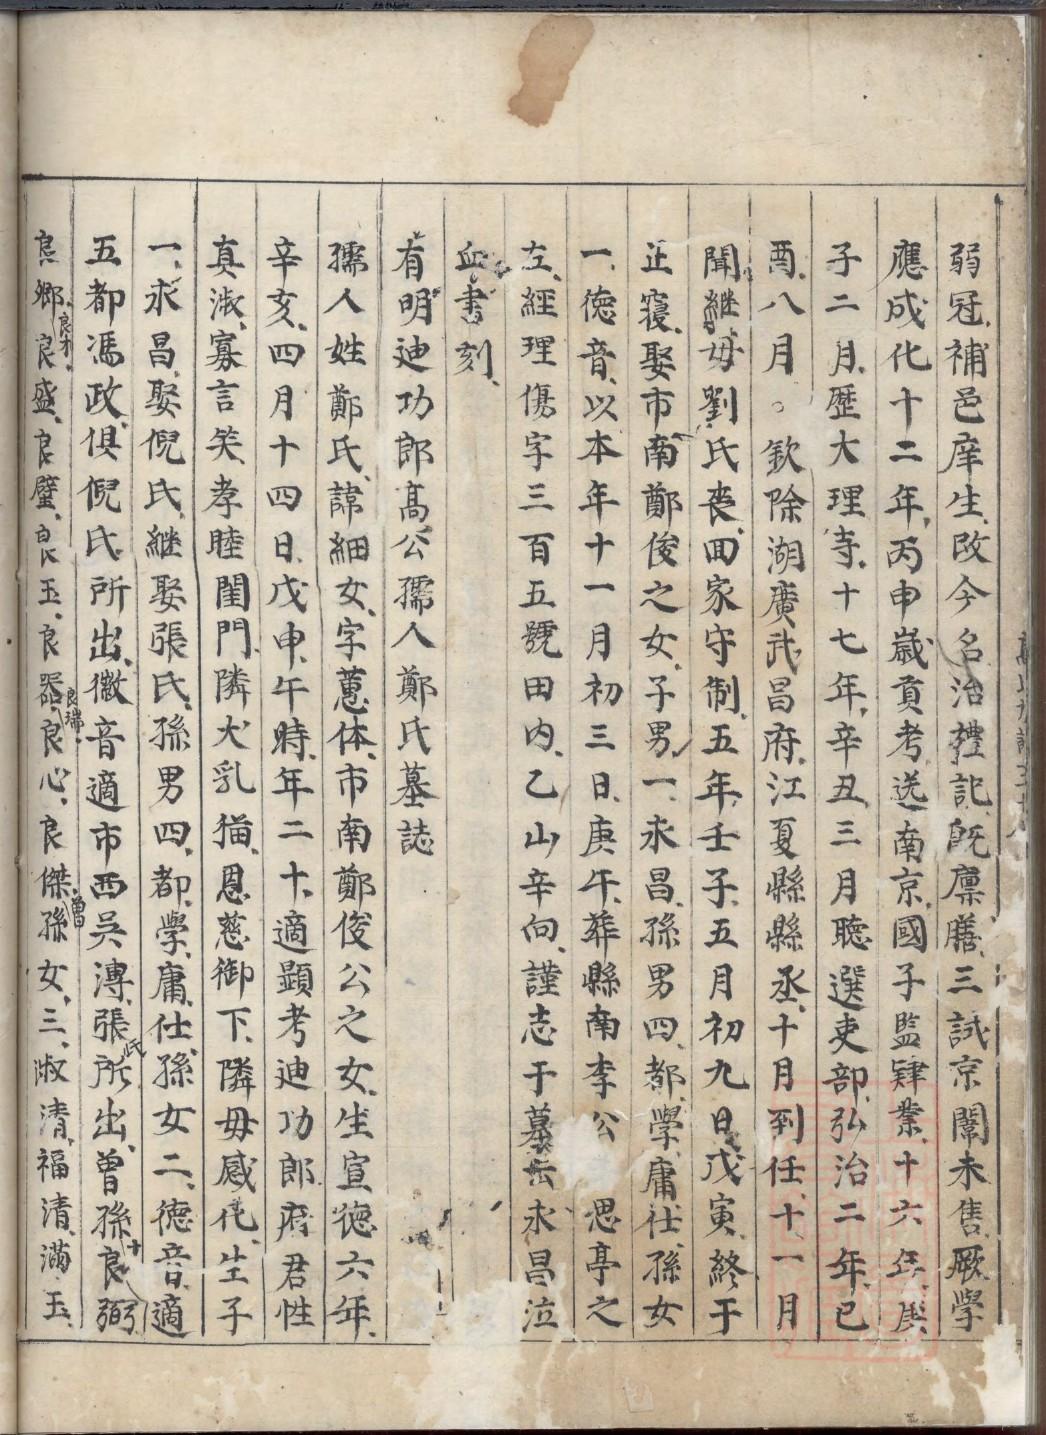 弱冠、補邑庠生、改今名、治禮記、既廩膳、三試京闈未售、厥學
應成化十二年、丙申歲貢考送南京、國子監肄業、十六年、庚
子二月、歷大理寺、十七年、辛丑、三月聽選吏部、弘治二年、已
酉、八月。欽除湖廣武昌府、江夏縣縣丞、十月到任、十一月
聞繼母劉氏丧、囬家守制、五年、壬子、五月初九日戊寅、終于
正寢、娶市南鄭俊之女、子男、一、永昌、孫男四、都、學、庸、仕、孫女
一、德音、以本年十一月初三日、庚午、葬縣南李公思亭之
左、經理傷字三百五號田内、乙山辛向、謹志于墓云永昌泣
血書刻、
有明迪功郎髙公孺人鄭氏墓誌
孺人姓鄭氏、諱細女、字蕙体、市南鄭俊公之女、生宣德六年、
辛亥、四月十四日、戊申、午時、年二十、適顯考迪功郎府君性
真淑、寡言笑、孝睦閨門、隣犬乳猫、恩慈御下、隣母感化、生子
一、永昌、娶倪氏、繼娶張氏、孫男四、都、學、庸、仕、孫女二、德音、適
五都馮政、俱倪氏所出、微音適市西吳漙、張氏所出、曾孫十良弼
良卿、良才、良盛、良璧、良玉、良器、良瑞、良心、良傑、曾孫女、三、淑清、福清、滿玉、